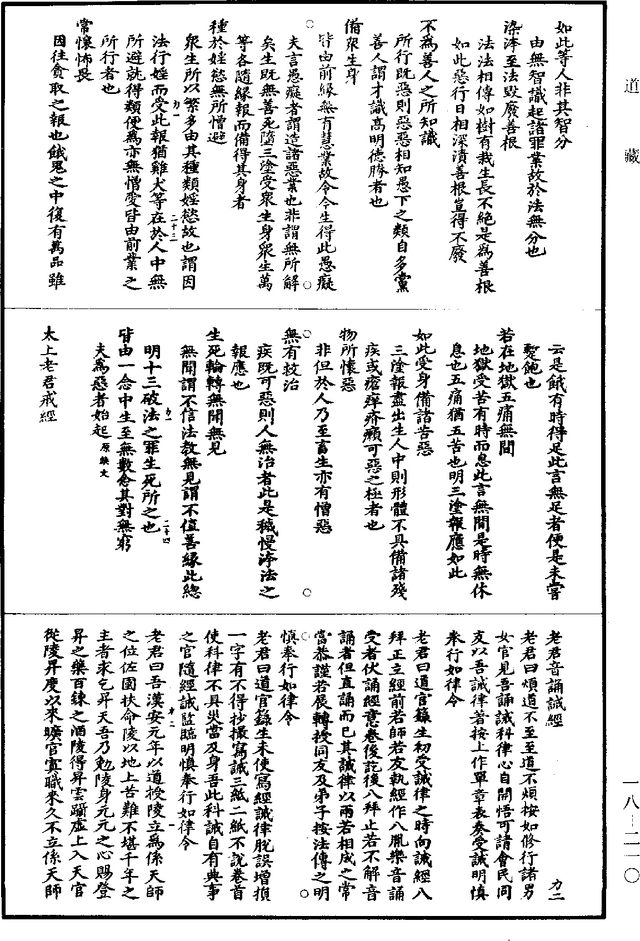 道藏
如此等人非其智分
由無智識起諸罪業故於法無分也
染洿至法毀廢善根
法法相傳如樹有栽生長不絕是為善根
如此惡行日相深漬善根豈得不廢
不為善人之所知識
所行既惡則惡惡相知愚下之類自多黨
善人謂才識高明德勝者也
備眾生身
皆由前緣無有慧業故令今生得此愚癡
夫言愚癡者謂造諸惡業也非謂無所解
矣生既無善死隨三塗受眾生身眾生萬
等各隨緣報而備得其身者
種於婬慾無所憎避
眾生所以繁多由其種類婬慾故也謂因
力一 二十三
法行婬而受此報猶雞犬等在於人中無
所避就得類便為亦無憎愛皆由前業之
所行者也
常懷怖畏
因往貪取之報也餓鬼之中復有萬品雖
云是餓有時得足此言無足者便是未嘗
蹔飽也
若在地獄五痛無間
地獄受苦有時而息此言無間是時無休
息也五痛猶五苦也明三塗報應如此
如此受身備諸苦惡
三塗報盡出生人中則形體不具備諸殘
疾或瘡痒疥癩可惡之極者也
物所懷惡
非但於人乃至畜生亦有憎惡
無有救治
疾既可惡則人無治者此是穢慢洿法之
報應也
生死輪轉無聞無見
無聞謂不信法教無見謂不值善緣此總
力一 二十四
明十三破法之罪生死所之也
皆由一念中生至無數念其對無窮
夫為惡者始起原缺文
太上老君戒經
老君音誦誡經
力二
老君曰煩道不至至道不煩按如修行諸男
女官見吾誦誡科律心自開悟可請會民同
友以吾誡律著按上作單章表奏受誡明慎
奉行如律令
老君曰道官籙生初受誡律之時向誡經八
拜正立經前若師若友執經作八胤樂音誦
受者伏誦經意卷後訖後八拜止若不解音
誦者但直誦而已其誡律以兩若相成之常
當恭謹若展轉授同友及弟子按法傳之明
慎奉行如律令
老君曰道官籙生未使寫經誡律脫誤增損
一字有不得抄撮寫誡三紙二紙不說卷首
使科律不具災當及身吾此科誡自有典事
之官隨經誡監臨明慎奉行如律令
老君曰吾漢安元年以道授陵立為係天師
之位佐國扶命陵以地上苦難不堪千年之
主者求乞昇天吾乃勉陵身元元之心賜登
昇之藥百鍊之酒陵得昇雲躡虛上入天官
從陵昇度以來曠官寘職來久不立係天師
一八—二一〇